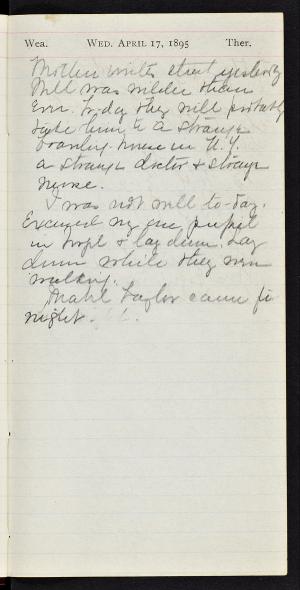 Wea. WED. APRIL 17, 1895 Ther.
Mother writes that yesterday
Will was milder than
ever. To-day they will probably
take him to a strange
boarding house in N.Y.
a strange doctor & strange
nurse.
I was not well to-day.
Excused my one pupil
in & lay down. Lay
down while they were
walking.
Mabel Taylor came
night.